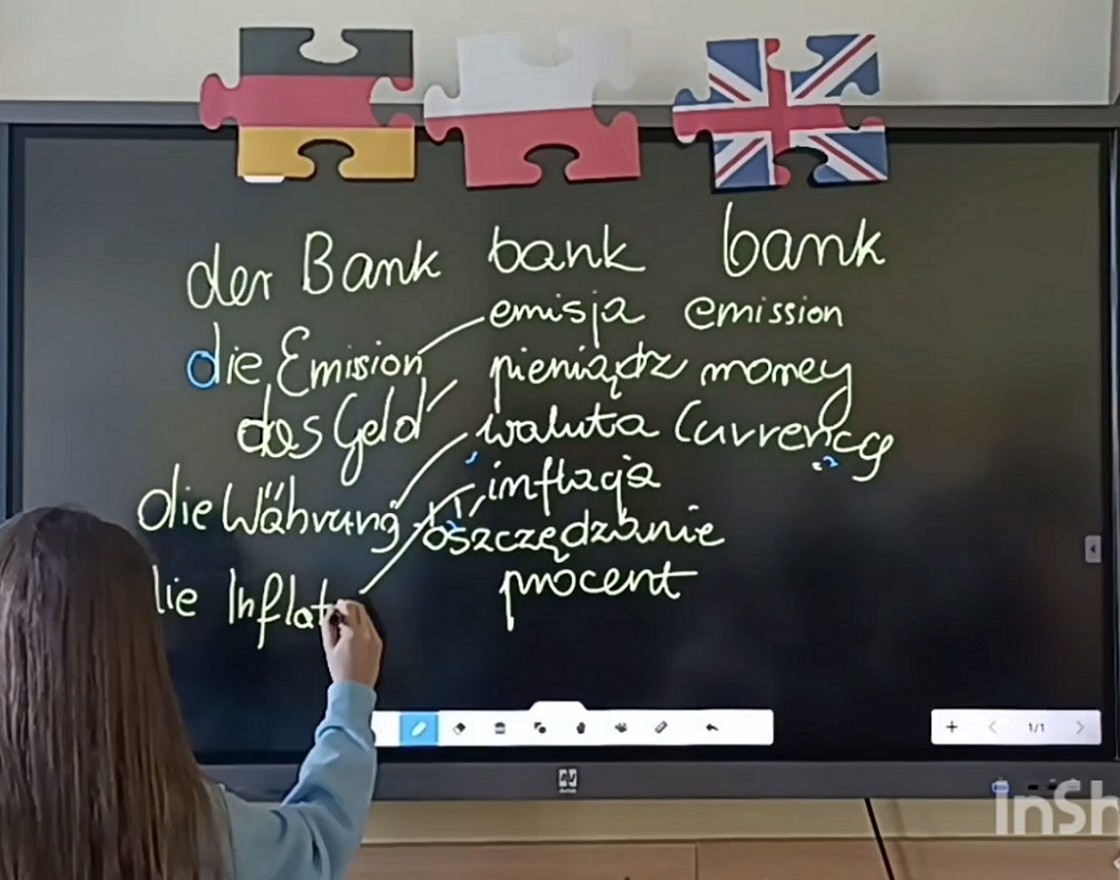 der Bank bank bank
emisja emission
die Emission
pieniądz money
das Geld
waluta Currency
die Währung
inflacja
oszczędzanie
die Inflat
procent
1/1
InSh